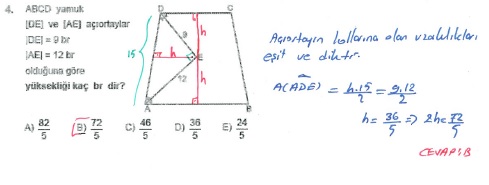 4. ABCD yamuk
[DE] ve [AE] açıortaylar
|DE| = 9 br
|AE| = 12 br
olduğuna göre
yüksekliği kaç br dir?
A) 82/5 B) 72/5 C) 46/5 D) 36/5 E) 24/5
D C
9
15 h h
E
12 h
A B
Açıortayın kollarına olan uzaklıkları
eşit ve diktir.
A(ADE) = h.15/2 = 9.12/2
h = 36/5 => 2h = 72/5
CEVAP: B